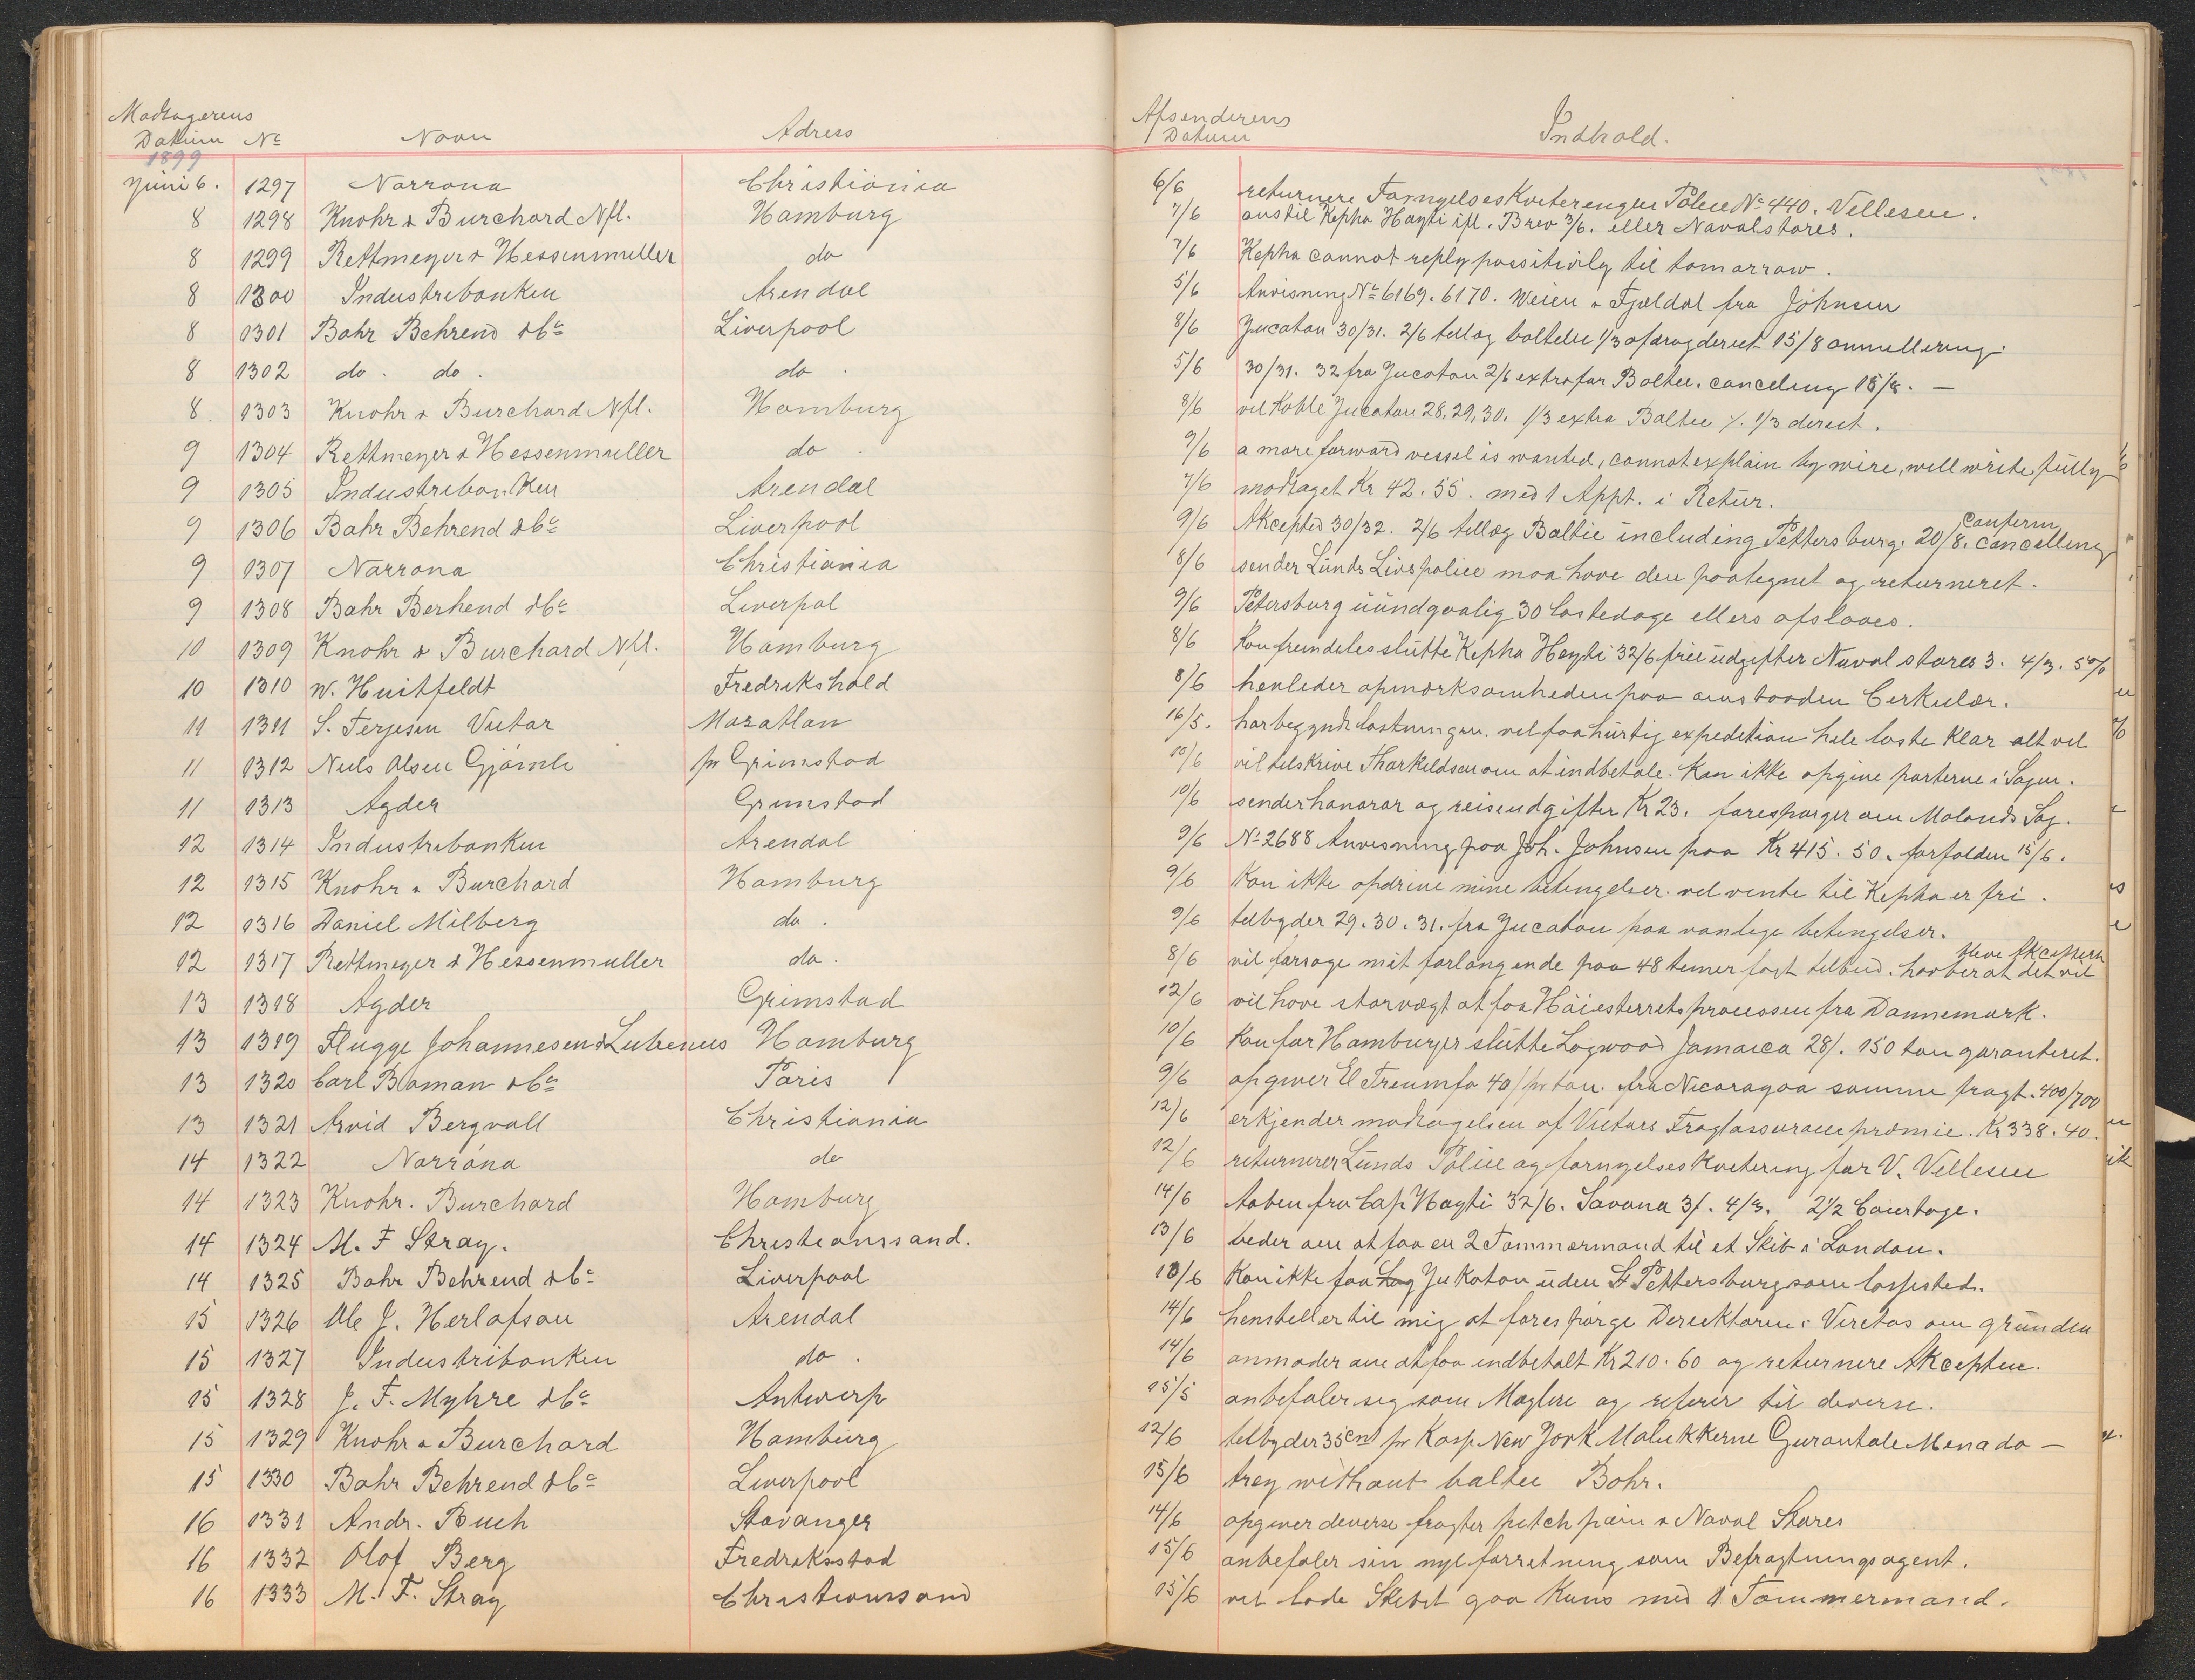 Modtagerens Afsenderens
Datum No Navn Adress Datum Indhold.
1899
Juni 6. 1297 Norrona Christiania 6/6 returnere Fornyelses Kvitteringen Police No 440. Vellesen.
8 1298 Knohr & Burchard Nfl. Hamburg 7/6 ans til Kepha Hayti ifl. Brev 3/6. eller Navalstores.
8 1299 Rettmeyer & Hessenmuller do 7/6 Kepha cannot reply possitivly til tomorrow.
8 1300 Industribanken Arendal 5/6 Anvisning No 6169. 6170. Weien & Fjeldal fra Johnsen
8 1301 Bahr Behrend & Co Liverpool 8/6 Jucatan 30/31. 2/6 tillæg baltein 1/3 afdrag direct 15/8 annullering.
8 1302 do. do. do. 5/6 30/31. 32 fra Jucatan 2/6 extra for Baltic. canceling 15/8. —
8 1303 Knohr & Burchard Nfl. Hamburg 8/6 vil Kable Jucatan 28, 29, 30. 1/3 extra Baltic %. 1/3 direct.
9 1304 Rettmeyer & Hessenmuller do. 9/6 a more forward vessel is wanted, cannot explain by wire, will write fully
9 1305 Industribanken Arendal 7/6 modtaget Kr 42.55. med 1 Appt. i Retur.
9 1306 Bahr Behrend & Co Liverpool 9/6 Akcepted 30/32. 2/6 tillæg Baltic including Pettersburg. 20/8. cancelling confirm
9 1307 Norrona Christiania 8/6 sender Lunds Livspolice maa have den paategnet og returneret.
9 1308 Bahr Berhend & Co Liverpol 9/6 Petersburg uundgaalig 30 lastedage ellers afslaaes.
10 1309 Knohr & Burchard Nfl. Hamburg 8/6 Kan fremdeles slutte Kepha Hayti 32/6 frie udgifter Naval stores 3. 4/3. 5%
10 1310 W. Huitfeldt Fredrikshald 8/6 henleder opmærksomheden paa Cirkulær.
11 1311 S. Terjesen Victor Mazatlan 16/5. har begyndt lastningen. vil faa hurtig expedition hele laste klar alt vel
11 1312 Niels Olsen Gjömle pr Grimstad 10/6 vil tilskrive Tharkildsen om at indbetale. Kan ikke opgive parterne i Sagen.
11 1313 Agder Grimstad 10/6 sender honorar og reiseudgifter Kr 23. forespørger om Molands Sag.
12 1314 Industribanken Arendal 9/6 No 2688 Anvisning paa Joh. Johnsen paa Kr 415.50. forfalden 15/6.
12 1315 Knohr & Burchard Hamburg 9/6 Kan ikke opdrive mine betingelser. vil vente til Kepha er fri.
12 1316 Daniel Milberg do. 9/6 tilbyder 29. 30. 31. fra Jucatan paa vanlige betingelser.
12 1317 Rettmeyer & Hessenmuller do. 8/6 vil forsøge mit forlangende paa 48 timer fast tilbud. haaber at det vil blive Akceptert
13 1318 Agder Grimstad 12/6 vil have storvægt at faa Höiesterrets processen fra Dannemark.
13 1319 Flugge Johannesen & Lubenus Hamburg 10/6 Kan for Hamburger slutte Logwood Jamaica 28/. 150 ton garanteret.
13 1320 Carl Boman & Co Paris 9/6 opgiver El Treumfo 40/ pr ton. fra Nicaragaa samme fragt. 400/700
13 1321 Arvid Bergvall Christiania 12/6 erkjender modtagelsen af Victors Fragtassurancepræmie. Kr 338.40.
14 1322 Norröna do 12/6 returnerer Lunds Police og fornyelses Kvittering for V. Vellesen
14 1323 Knohr. Burchard Hamburg 14/6 Aaben fra Cap Hayti 32/6. Savana 3/. 4/3. 2 1/2 Courtage.
14 1324 M. F Stray. Christianssand. 13/6 beder om at faa en 2 Tømmermand til et Skib i London.
14 1325 Bahr Behrend & Co Liverpool 13/6 Kan ikke faa Jukatan uden St Pettersburg som lossested.
15 1326 Ole J. Herlofson Arendal 14/6 henstiller til mig at forespørge Direktøren i Veritas om grunden
15 1327 Industribanken do. 14/6 anmoder om at faa indbetalt Kr 210.60 og returnere Akcepten.
15 1328 J. F. Myhre & Co Antwerp 15/5 anbefaler seg som Mæglere og referer til diverse.
15 1329 Knohr & Burchard Hamburg 12/6 tilbyder 35 cnt pr Kasse New York Malukkerne Gurontale Menado —
15 1330 Bahr Behrend & Co Liverpool 15/6 trey without baltic Bahr.
16 1331 Andr. Buch Stavanger 14/6 opgiver diverse fragter pitch pain & Naval Stores
16 1332 Olof Berg Fredriksstad 15/6 anbefaler sin nye forretning som Befragtningsagent.
16 1333 M. F. Stray Christianssand 15/6 vil lade Skibet gaa Kuns med 1 Tømmermand.